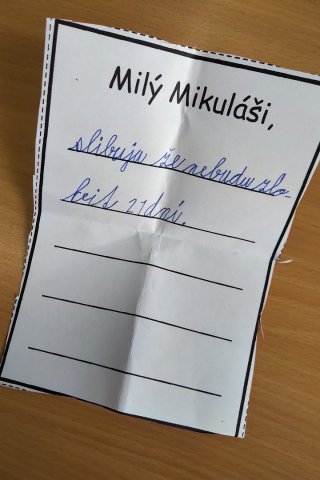 Milý Mikuláši,
slibuja že nebudu zlo-
bit 21 dní.